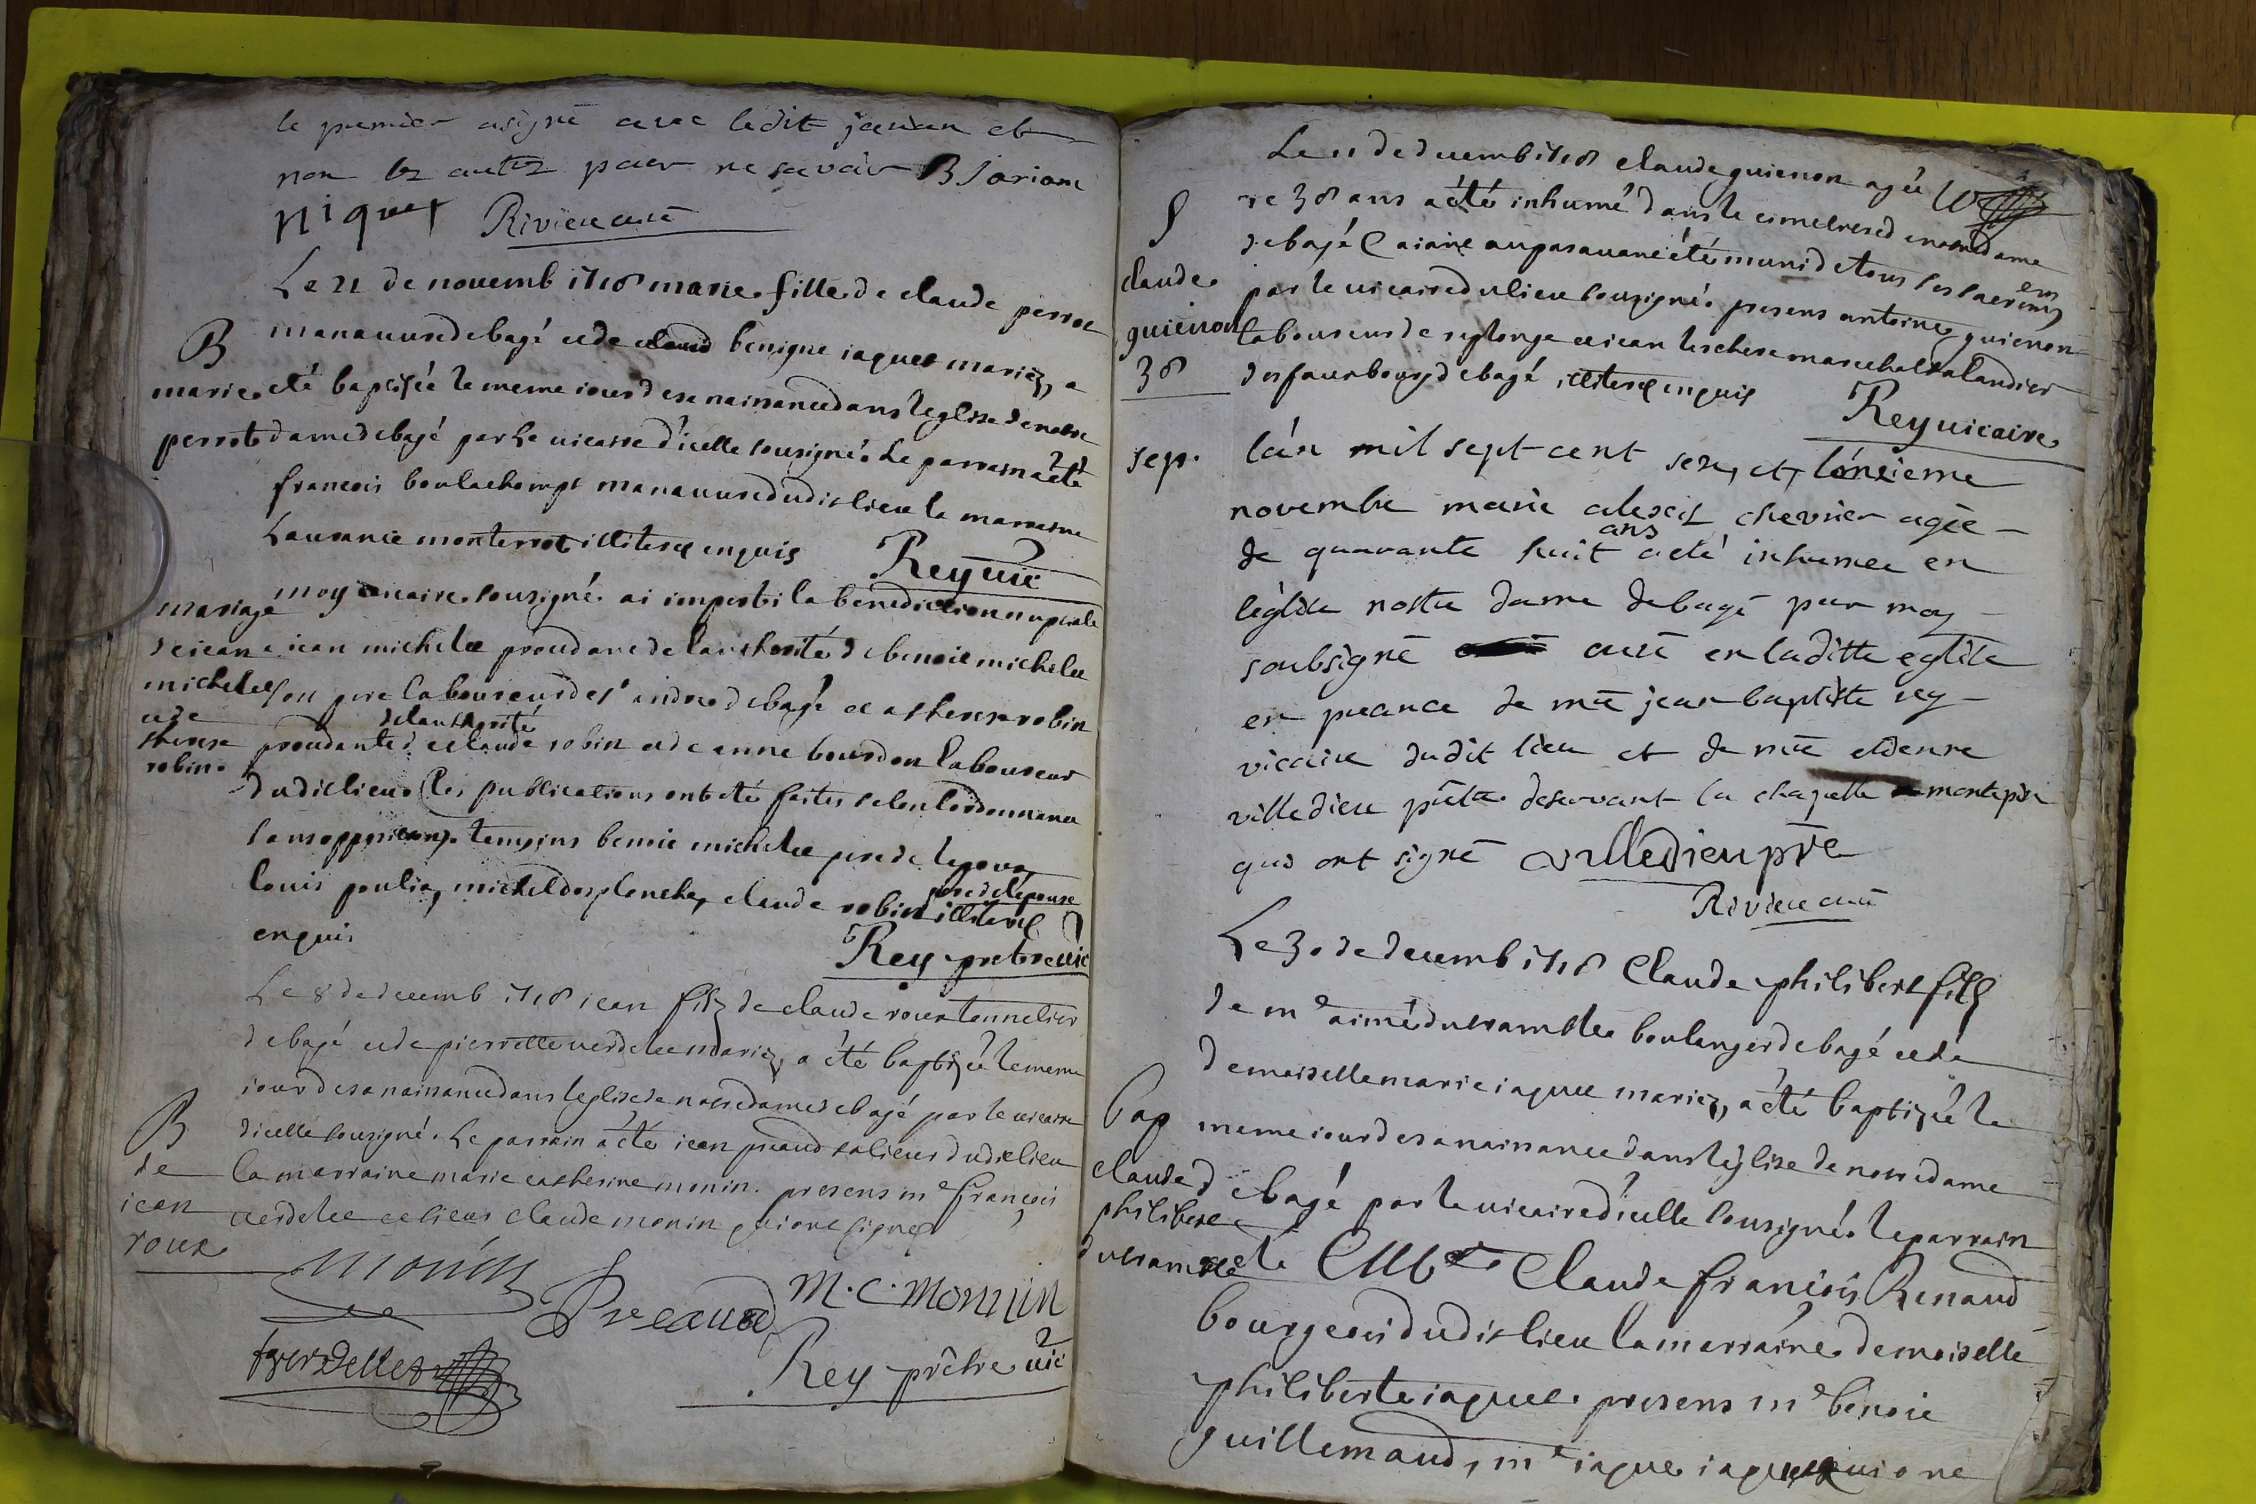 le premier asigné avec ledit janian et
non les autres pour ne savoir B Jariam
niquet Riviere curé
Le 21 de novemb 1718 marie fille de claude perrot
manauure de bagé et de benigne iaquet mariez, a
B
marie
perrot
été baptisée le meme iour de sa naissance dans leglise de notre
dame de bagé par le vicaire d'icelle souzigné. Le parrain a été
francois boulachomps manauure dudit lieu la marraine
Laurance monterrot illiteres enquis Rey vic
mariage
de iean
michelet
et de
therese
robin
moy vicaire souzigné ai imparti la benediction nuptiale
a iean michelet procedant de lauthorité de benoit michelet
son pere laboureur de st andré de bagé et a therese robin
procedante de lauthorité de claude robin et de anne bourdon laboureur
dudit lieu Les publications ont été faites selon lordonnance
sans opposition temoins benoit michelet pere de lepoux
louis poulia, michel desplanche, claude robin pere de lepouse illiteres
enquis
Rey pretre vic
Le 8 de decemb 1718 iean filz de claude roux tonnelier
de bagé et de pierrette verdelet mariez, a été baptizé le meme
iour de sa naissance dans leglise de notre dame de bagé par le vicaire
B
de
iean
roux
dicelle souzigné. Le parrain a été iean preaud dudit lieu
la marraine marie catherine monin. presens me françois
verdelet et sieur claude monin qui ont signez
monin Preaud M. C. Monnin
fverdellet Rey prêtre vic
Le 11 de decemb 1718 claude guienon agé
S
claude
guienon
38
de 38 ans a été inhumé dans le cimetiere de notre dame
de bagé aiant auparavant été muni de tous ses sacremens
par le vicaire du lieu souzigné. presens antoine guienon
laboureur de replonge et iean leschere marechal taillandier
du faux bourg de bagé illiteres enquis
Rey vicaire
sep.
lán mil sept cent seze, et, lónzieme
novembre marie alexis chevrier agée
de quarante huit ans a eté inhumee en
léglise nostre dame de bagé par moy
soubsigné curé en laditte eglise
en preance de mre jean baptiste rey
vicaire dudit lieu et de mre etienne
villedieu prêtre deservant la chapelle montepin
qui ont signé Villedieu pre
Riviere curé
Le 30 de decemb 1718 Claude philibert filz
de me aimé ducramble boulanger de bagé et de
demoiselle marie iaquet mariez, a été baptizé le
Bap
claude
philibert
meme iour de sa naissance dans leglise de notre dame
de bagé par le vicaire d'icelle souzigné. le parrain
été Claude françois Renaud
bourgeois dudit lieu la marraine demoiselle
philiberte iaquet. presens me benoit
guillemaud, me iaque iaquet qui ont